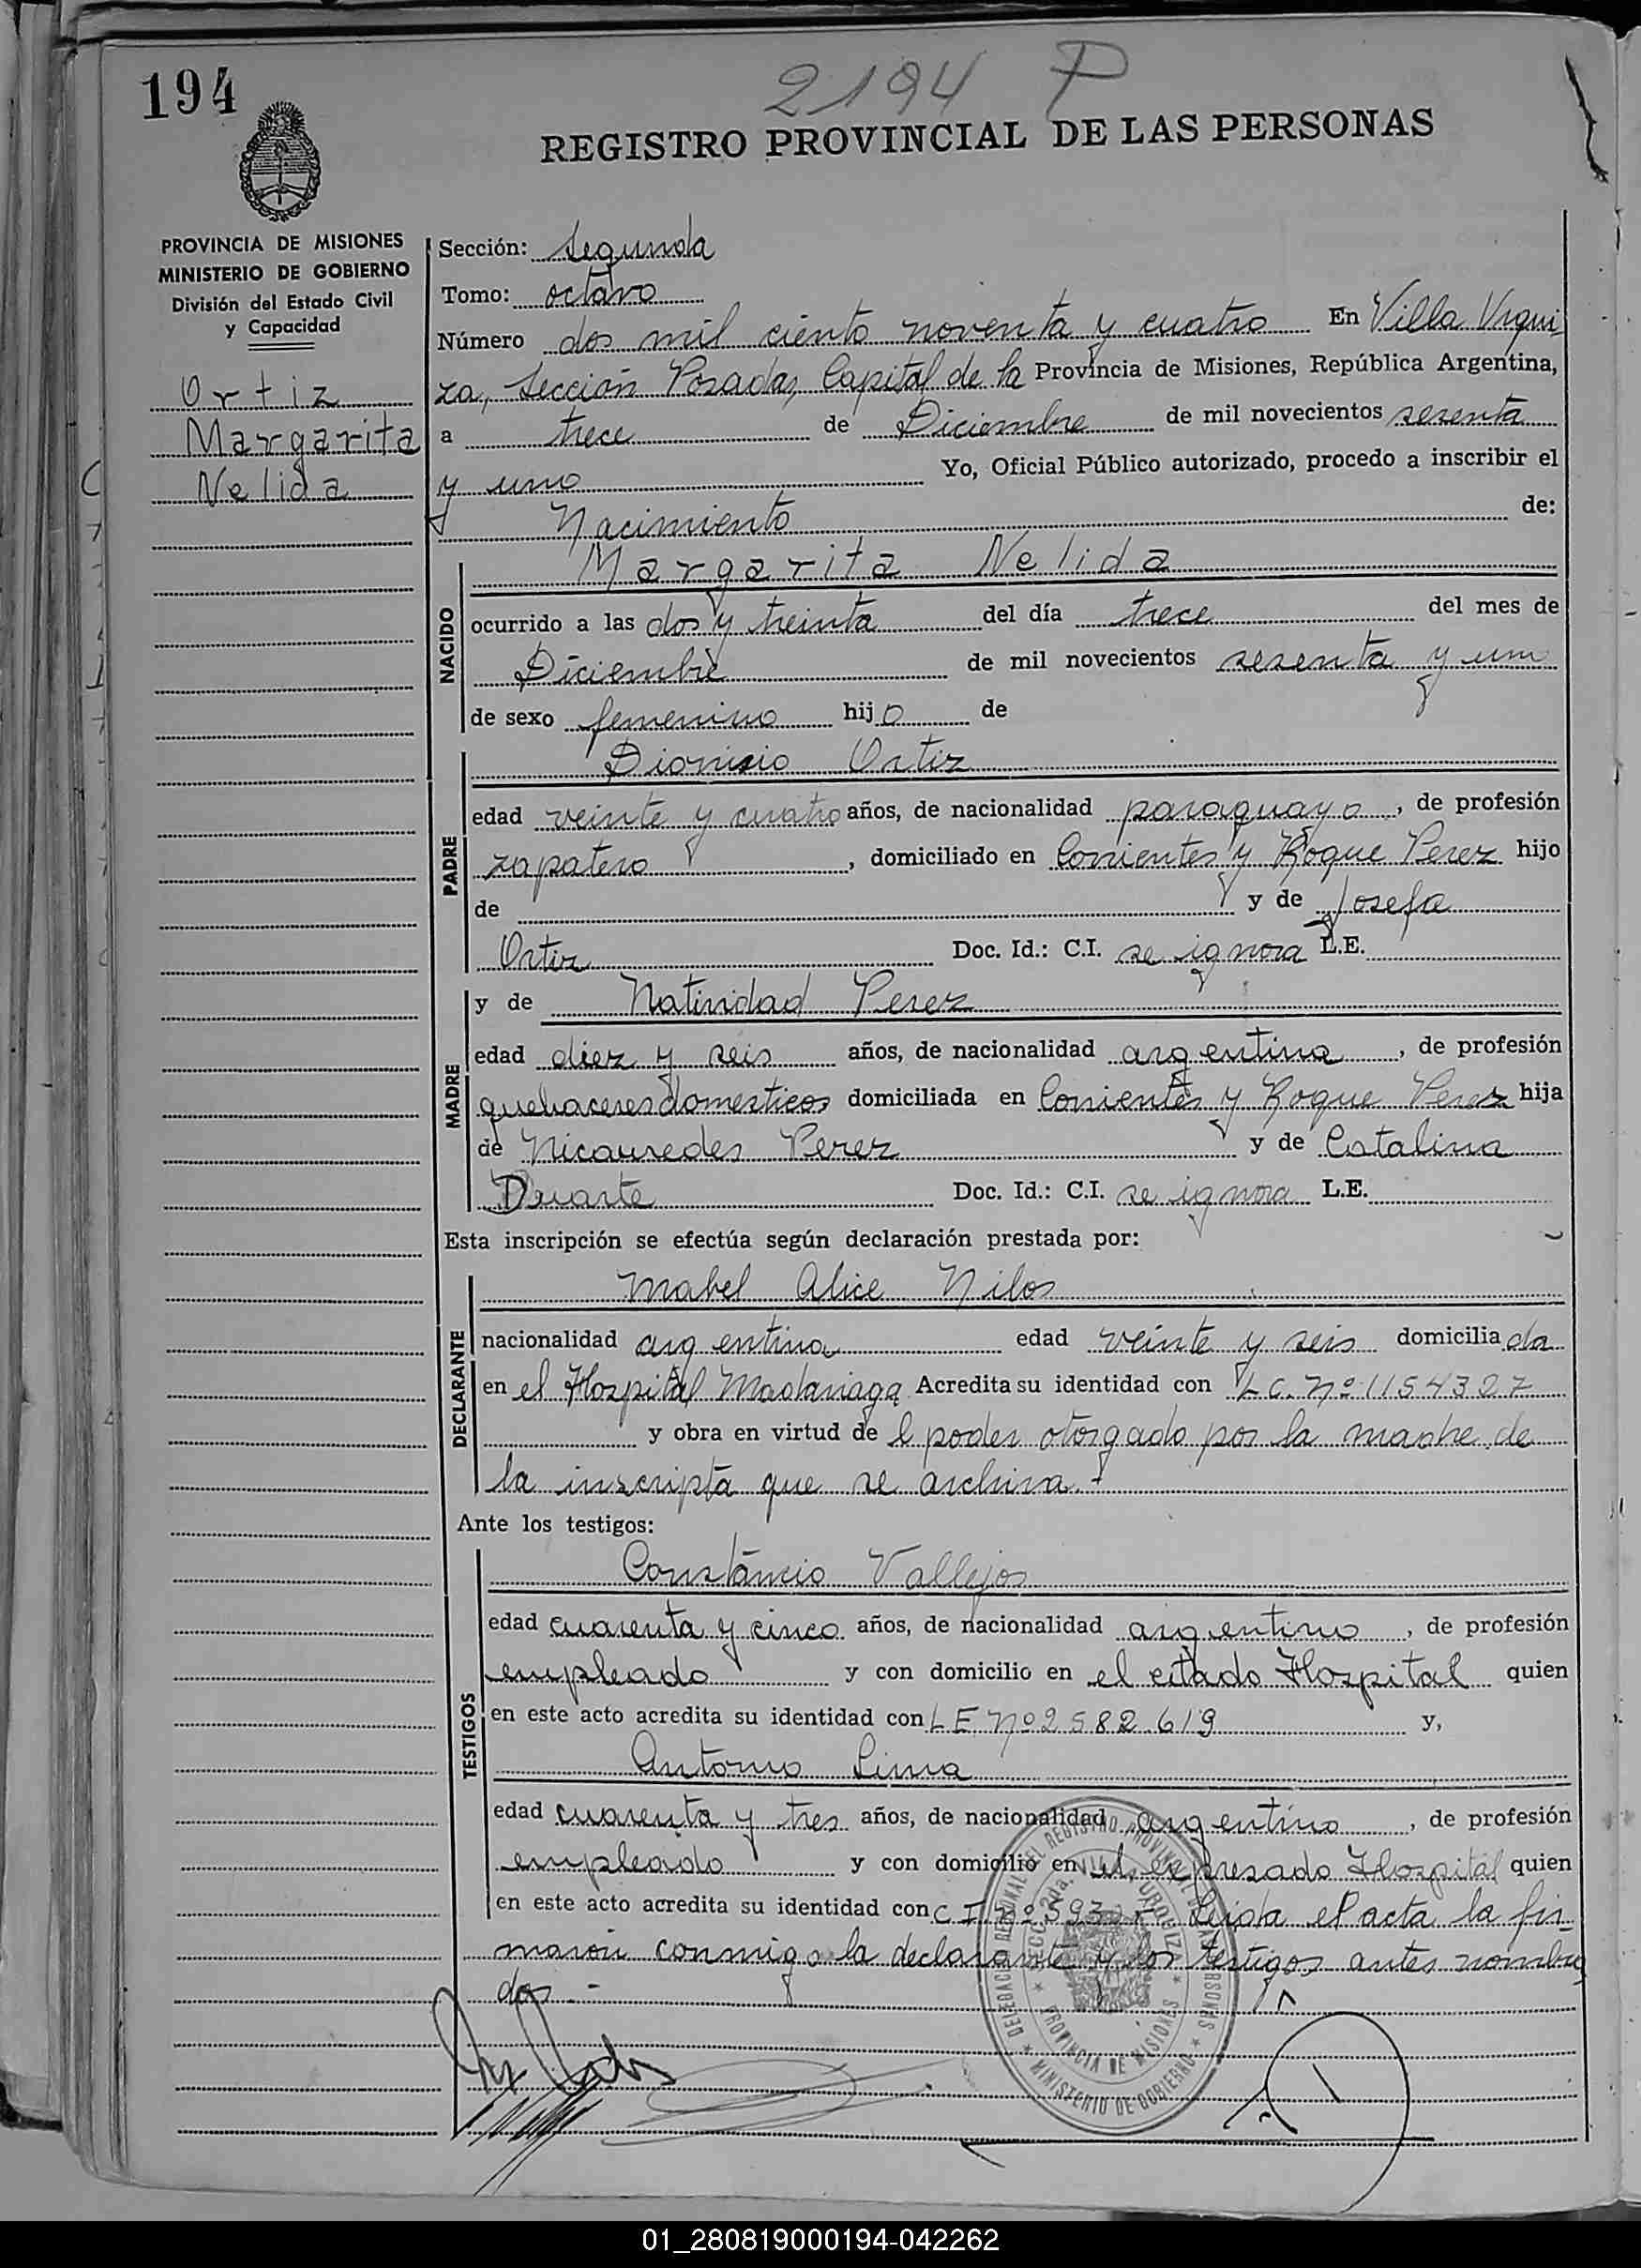 194
2194 P
REGISTRO PROVINCIAL DE LAS PERSONAS
PROVINCIA DE MISIONES
MINISTERIO DE GOBIERNO
División del Estado Civil
y Capacidad
Ortiz
Margarita
Nelida
Sección: Segunda
Tomo: octavo
Número dos mil ciento noventa y cuatro En Villa Urqui
za, Sección Posadas, Capital de la Provincia de Misiones, República Argentina,
a trece de Diciembre de mil novecientos sesenta
y uno Yo, Oficial Público autorizado, procedo a inscribir el
Nacimiento de:
NACIDO
Margarita Nelida
ocurrido a las dos y treinta del día trece del mes de
Diciembre de mil novecientos sesenta y uno
de sexo femenino hijo de
PADRE
Dionisio Ortiz
edad veinte y cuatro años, de nacionalidad paraguayo, de profesión
zapatero, domiciliado en Corrientes y Roque Perez hijo
de y de Josefa
Ortiz Doc. Id.: C.I. se ignora L.E.
MADRE
y de Natividad Perez
edad diez y seis años, de nacionalidad argentina, de profesión
quehaceres domesticos domiciliada en Corrientes y Roque Perez hija
de Nicauredes Perez y de Catalina
Duarte Doc. Id.: C.I. se ignora L.E.
Esta inscripción se efectúa según declaración prestada por:
DECLARANTE
Mabel Alice Nilos
nacionalidad argentina edad veinte y seis domiciliada
en el Hospital Madariaga Acredita su identidad con L.C. Nº 1154327
y obra en virtud del poder otorgado por la madre de
la inscripta que se archiva.-
Ante los testigos:
TESTIGOS
Constancio Vallejos
edad cuarenta y cinco años, de nacionalidad argentino, de profesión
empleado y con domicilio en el citado Hospital quien
en este acto acredita su identidad con L E Nº 2582619 y,
Antonio Lima
edad cuarenta y tres años, de nacionalidad argentino, de profesión
empleado y con domicilio en el expresado Hospital quien
en este acto acredita su identidad con C I Leida el acta la fir
maron conmigo la declarante y los testigos antes nombra
dos.-
DELEGACION REGIONAL DEL REGISTRO PROVINCIAL DE LAS PERSONAS
SECC. 2da. VILLA URQUIZA
PROVINCIA DE MISIONES
MINISTERIO DE GOBIERNO
01_280819000194-042262